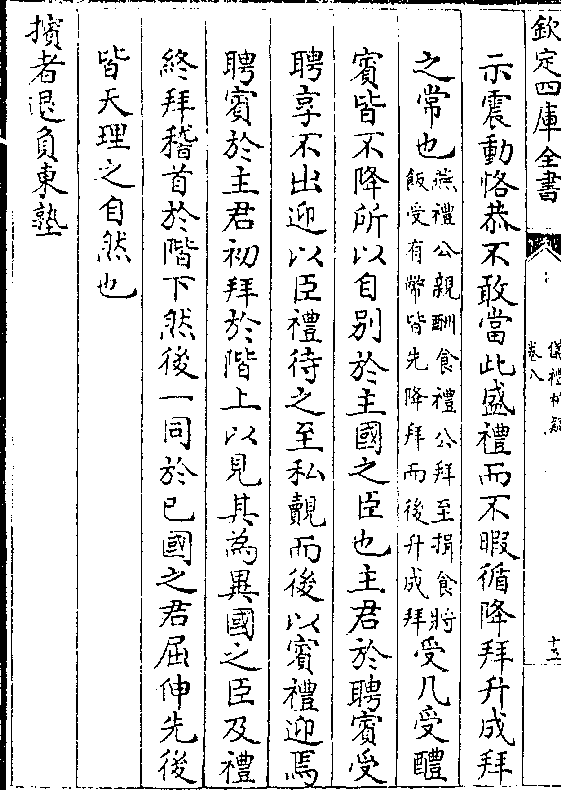 欽定四庫全書
儀禮析疑
卷八
十五
示震動恪恭不敢當此盛禮而不暇循降拜升成拜
之常也
燕禮公親酬食禮公拜至揖食將
飯受有幣皆先降拜而後升成拜
受几受醴
賓皆不降所以自別於主國之臣也主君於聘賓受
聘享不出迎以臣禮待之至私覿而後以賓禮迎焉
聘賓於主君初拜於階上以見其為異國之臣及禮
終拜稽首於階下然後一同於已國之君屈伸先後
皆天理之自然也
擯者退負東塾